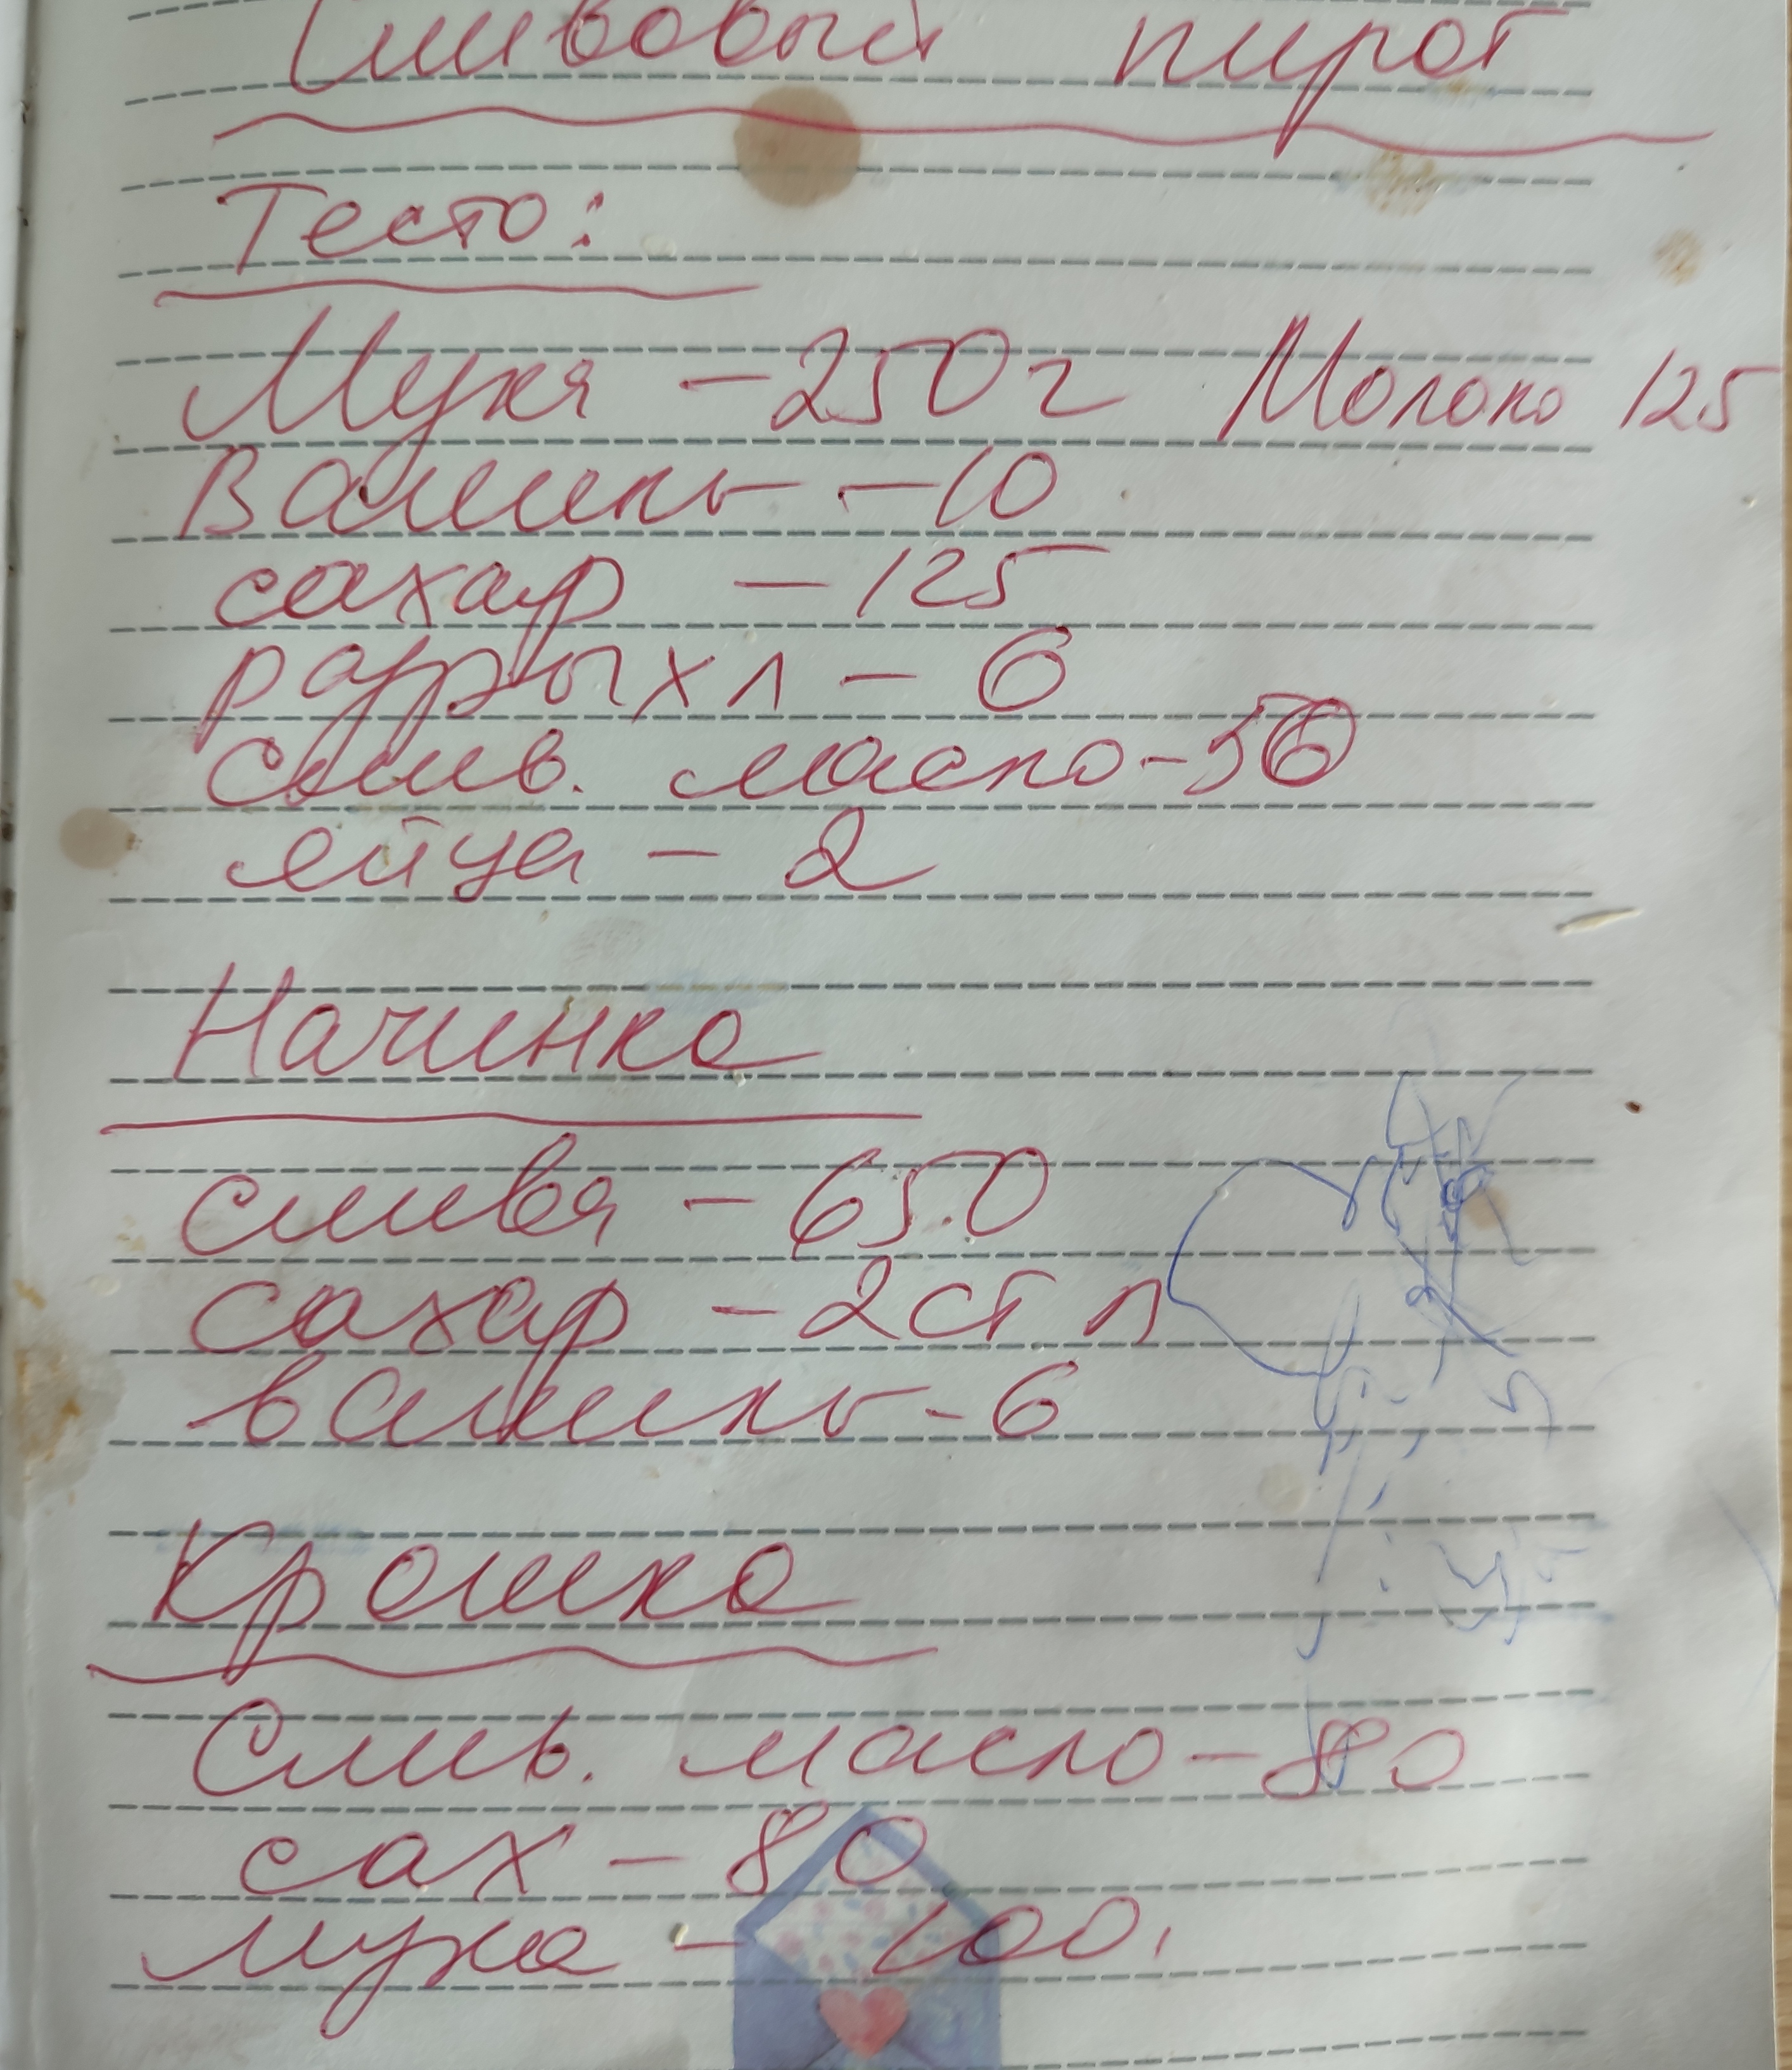 Сливовый пирог
Тесто:
Мука - 250г Молоко 125
Ваниль - 10
сахар - 125
разрыхл - 6
слив. масло - 50
яйца - 2
Начинка
слива - 650
сахар - 2 ст л
ваниль - 6
Крошка
Слив. масло - 80
сах - 80
мука - 100.